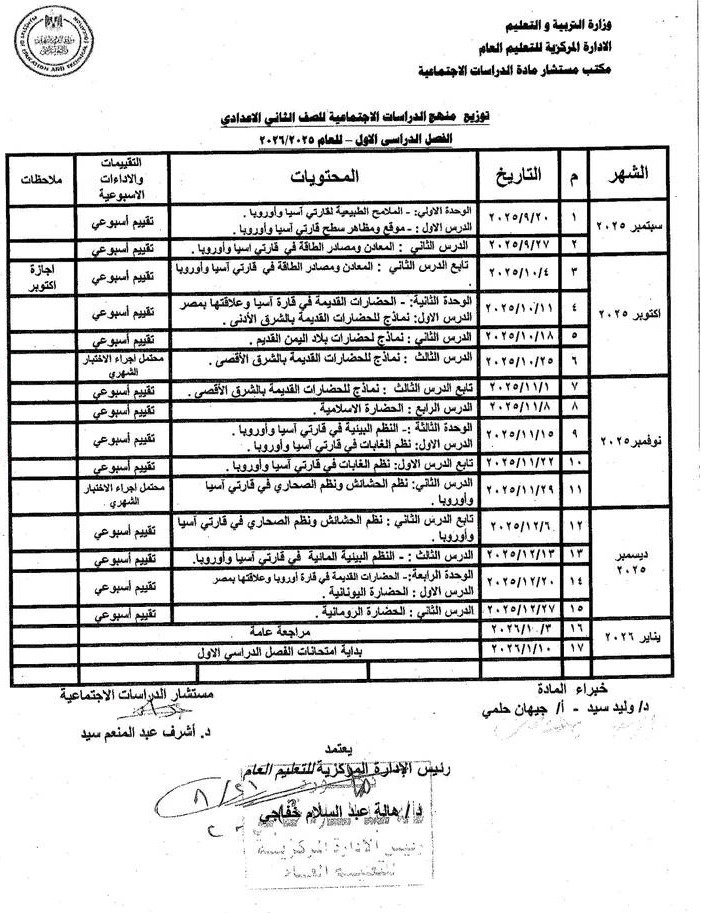 وزارة التربية و التعليم
الادارة المركزية للتعليم العام
مكتب مستشار مادة الدراسات الاجتماعية
توزيع منهج الدراسات الاجتماعية للصف الثاني الاعدادي
الفصل الدراسى الاول – للعام ٢٠٢٦/٢٠٢٥
الشهر م التاريخ المحتويات التقييمات والاداءات الاسبوعية ملاحظات
سبتمبر ٢٠٢٥
١ ٢٠٢٥/٩/٢٠ الوحدة الاولي:- الملامح الطبيعية لقارتي آسيا وأوروبا .
الدرس الاول : - موقع ومظاهر سطح قارتي آسيا وأوروبا . تقييم أسبوعي
٢ ٢٠٢٥/٩/٢٧ الدرس الثاني : المعادن ومصادر الطاقة في قارتي اسيا وأوروبا . تقييم أسبوعي
اكتوبر ٢٠٢٥
٣ ٢٠٢٥/١٠/٤ تابع الدرس الثاني : المعادن ومصادر الطاقة في قارتي آسيا وأوروبا . تقييم أسبوعي اجازة اكتوبر
٤ ٢٠٢٥/١٠/١١ الوحدة الثانية: - الحضارات القديمة في قارة آسيا وعلاقتها بمصر
الدرس الاول: نماذج للحضارات القديمة بالشرق الأدنى . تقييم أسبوعي
٥ ٢٠٢٥/١٠/١٨ الدرس الثاني: نماذج لحضارات بلاد اليمن القديم . تقييم أسبوعي
٦ ٢٠٢٥/١٠/٢٥ الدرس الثالث : نماذج للحضارات القديمة بالشرق الأقصى . محتمل اجراء الاختبار الشهري
نوفمبر ٢٠٢٥
٧ ٢٠٢٥/١١/١ تابع الدرس الثالث : نماذج للحضارات القديمة بالشرق الأقصى . تقييم أسبوعي
٨ ٢٠٢٥/١١/٨ الدرس الرابع : الحضارة الاسلامية . تقييم أسبوعي
٩ ٢٠٢٥/١١/١٥ الوحدة الثالثة :- النظم البيئية في قارتي آسيا وأوروبا .
الدرس الاول: نظم الغابات في قارتي آسيا وأوروبا . تقييم أسبوعي
١٠ ٢٠٢٥/١١/٢٢ تابع الدرس الاول: نظم الغابات في قارتي آسيا وأوروبا . تقييم أسبوعي
١١ ٢٠٢٥/١١/٢٩ الدرس الثاني: نظم الحشائش ونظم الصحاري في قارتي آسيا وأوروبا . محتمل اجراء الاختبار الشهري
ديسمبر ٢٠٢٥
١٢ ٢٠٢٥/١٢/٦ تابع الدرس الثاني : نظم الحشائش ونظم الصحاري في قارتي آسيا وأوروبا . تقييم أسبوعي
١٣ ٢٠٢٥/١٢/١٣ الدرس الثالث : - النظم البيئية المائية في قارتي آسيا وأوروبا. تقييم أسبوعي
١٤ ٢٠٢٥/١٢/٢٠ الوحدة الرابعة:- الحضارات القديمة في قارة أوروبا وعلاقتها بمصر
الدرس الاول : الحضارة اليونانية . تقييم أسبوعي
١٥ ٢٠٢٥/١٢/٢٧ الدرس الثاني : الحضارة الرومانية . تقييم أسبوعي
يناير ٢٠٢٦
١٦ ٢٠٢٦/١٠/٣ مراجعة عامة
١٧ ٢٠٢٦/١/١٠ بداية امتحانات الفصل الدراسي الاول
خبراء المادة
د/ وليد سيد - أ/ جيهان حلمي
مستشار الدراسات الاجتماعية
د. أشرف عبد المنعم سيد
يعتمد
رئيس الإدارة المركزية للتعليم العام
د / هالة عبد السلام خفاجي
رئيس الادارة المركزية